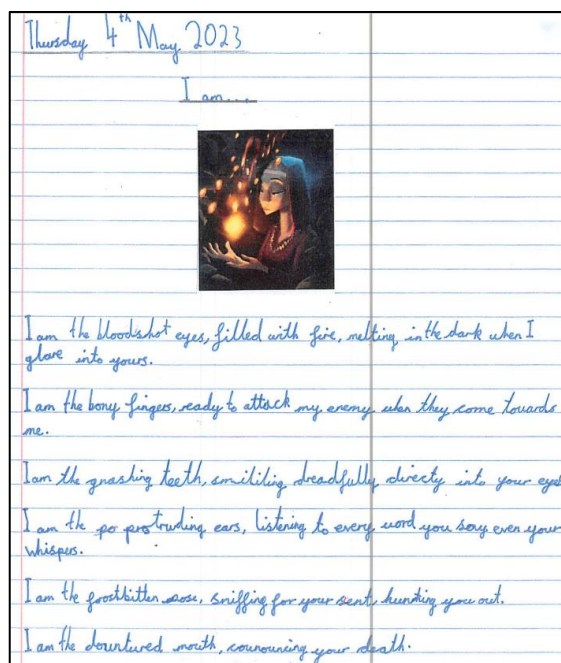 Thursday 4th May 2023
I am....
I am the bloodshot eyes, filled with fire, melting in the dark when I
glare into yours.
I am the bony fingers, ready to attack my enemy when they come towards
me.
I am the gnashing teeth, smililing dreadfully directy into your eyes
I am the po protruding ears, listening to every word you say even your
whispers.
I am the frostbitten nose, sniffing for your sent, hunting you out.
I am the downtured mouth, your death.